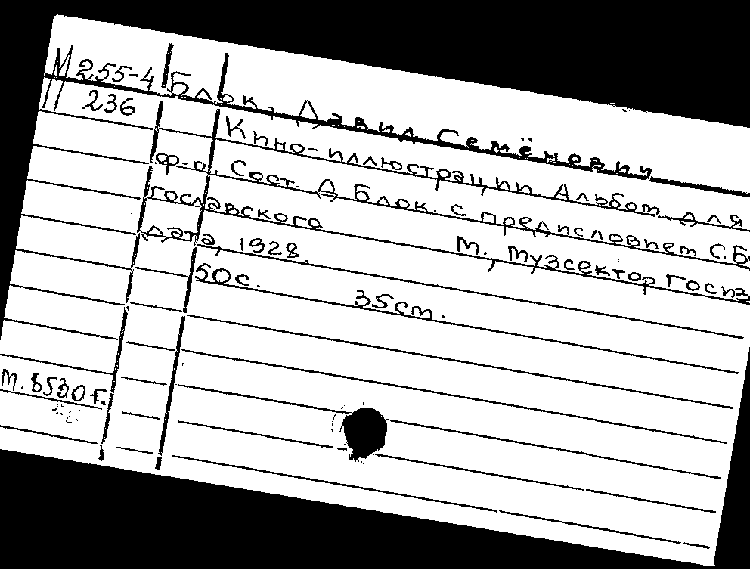 М 255-4
236
Блок, Давид Семёнович
Кино-иллюстрации Альбом для
ф-п. Сост. Д Блок. с предисловием С.Бо
гославского М., Музсектор Госиз
дата, 1928.
50с. 35см.